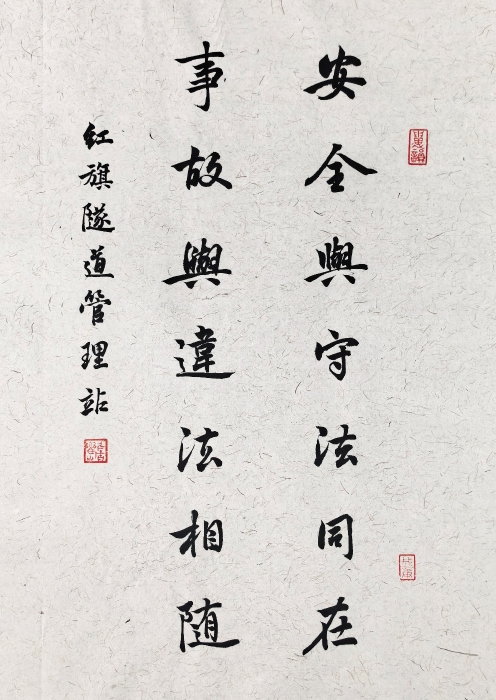 安全與守法同在
事故與違法相随
紅旗隧道管理站